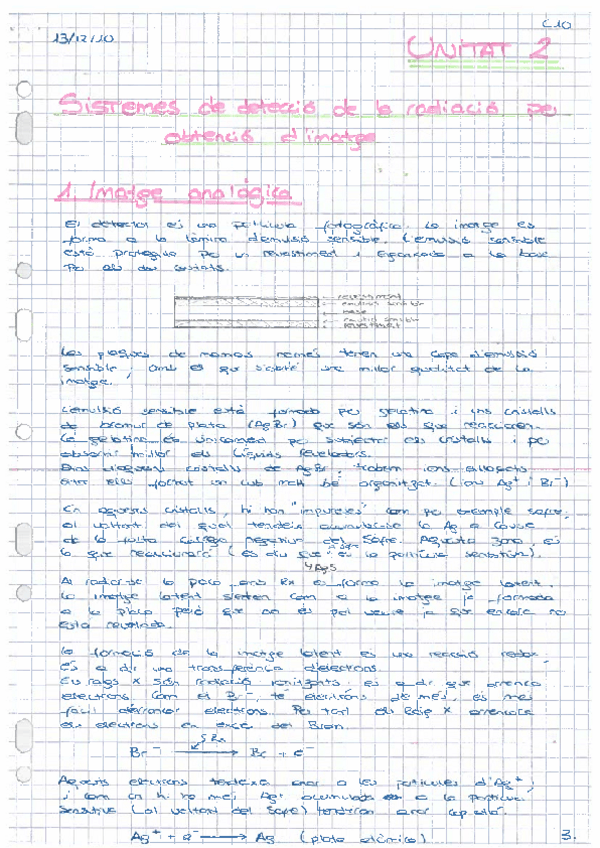 13/12/10
UNITAT 2
Sistemes de detecció de la radiació per
obtenció d'imatge
1. Imatge analógica
El detector és una pel·lícula fotogràfica. La imatge es
forma a la làmina d'emulsió sensible. L'emulsió sensible
està protegida per un revestiment i enganxada a la base
per els dos costats.
revestiment
emulsió sensible
base
emulsió sensible
revestiment
Les plaques de mamos només tenen una capa d'emulsió
sensible, amb el que s'obté una millor qualitat de la
imatge.
L'emulsió sensible està formada per gelatina i uns cristalls
de bromur de plata (AgBr) que són els que reaccionen.
La gelatina és únicament per subjectar els cristalls i per
absorvir millor els líquids reveladors.
Dins d'aquests cristalls de AgBr, trobem ions
entre ells format un cub molt bé organitzat. (ions Ag+ i Br-)
En aquests cristalls, hi han "impureses" com per exemple sofre,
al voltant del qual tendeix acumular-se la Ag a causa
de la càrrega negativa del Sofre. Aquesta zona, és
la que reaccionarà (es diu que és la partícula sensitiva).
Ag2S
Al radiar-se la placa amb Rx es forma la imatge latent.
La imatge latent s'entén com a la imatge ja formada
a la placa però que no es pot veure ja que encara no
està revelada.
La formació de la imatge latent és una reacció redox,
és a dir una transferència d'electrons.
Els raigs X són radiació ionitzants, és a dir que arrenca
electrons. Com el Br-, té electrons de més, és més
fàcil d'arrancar electrons. Per tant els Raigs X arrencaran
els electrons en excés del Brom.
Rx
Br- → Br + e-
Aquests electrons tendeixen anar a les partícules d'Ag+,
i com on hi ha més Ag+ acumulada és a la partícula
sensitiva (al voltant del Sofre) tendiran anar cap allà.
Ag+ + e- → Ag (plata atòmica)
3.